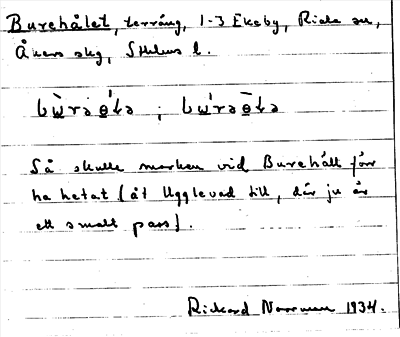 Burehålet, terräng, 1-3 Ekeby, Riala sn,
Åkers skg, Sthlms l.
Så skulle marken vid Burehåll förr
ha hetat (åt Ugglevad till, där ju är
ett smalt pass).
Rickard Norrman 1934.